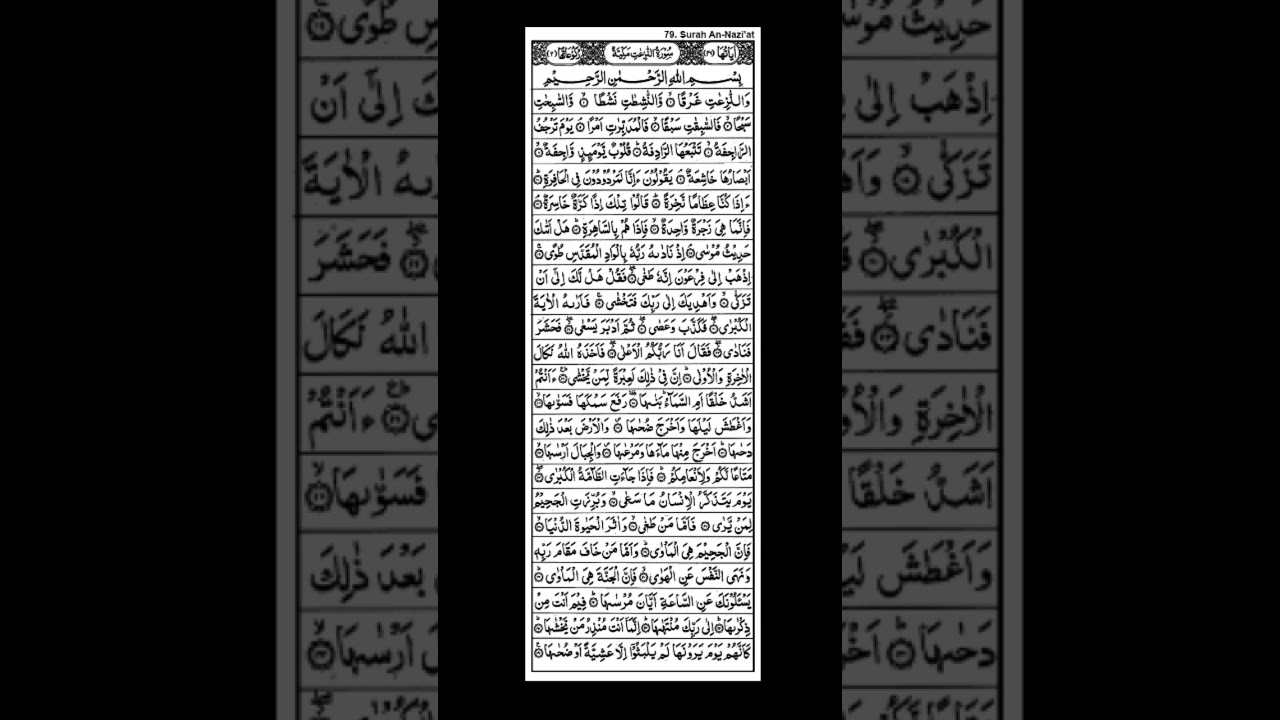 79. Surah An-Nazi'at
اٰيَاتُهَا (٤٦) سُوْرَةُ النّٰزِعٰتِ مَكِّيَّةٌ رُكُوْعَاتُهَا (٢)
بِسْمِ اللّٰهِ الرَّحْمٰنِ الرَّحِيْمِ
وَالنّٰزِعٰتِ غَرْقًا ۝ وَّالنّٰشِطٰتِ نَشْطًا ۝ وَّالسّٰبِحٰتِ
سَبْحًا ۝ فَالسّٰبِقٰتِ سَبْقًا ۝ فَالْمُدَبِّرٰتِ اَمْرًا ۝ يَوْمَ تَرْجُفُ
الرَّاجِفَةُ ۝ تَتْبَعُهَا الرَّادِفَةُ ۝ قُلُوْبٌ يَّوْمَىِٕذٍ وَّاجِفَةٌ ۝
اَبْصَارُهَا خَاشِعَةٌ ۝ يَقُوْلُوْنَ ءَاِنَّا لَمَرْدُوْدُوْنَ فِى الْحَافِرَةِ ۝
ءَاِذَا كُنَّا عِظَامًا نَّخِرَةً ۝ قَالُوْا تِلْكَ اِذًا كَرَّةٌ خَاسِرَةٌ ۝
فَاِنَّمَا هِىَ زَجْرَةٌ وَّاحِدَةٌ ۝ فَاِذَا هُمْ بِالسَّاهِرَةِ ۝ هَلْ اَتٰىكَ
حَدِيْثُ مُوْسٰى ۝ اِذْ نَادٰىهُ رَبُّهٗ بِالْوَادِ الْمُقَدَّسِ طُوًى ۝
اِذْهَبْ اِلٰى فِرْعَوْنَ اِنَّهٗ طَغٰى ۝ فَقُلْ هَلْ لَّكَ اِلٰٓى اَنْ
تَزَكّٰى ۝ وَاَهْدِيَكَ اِلٰى رَبِّكَ فَتَخْشٰى ۝ فَاَرٰىهُ الْاٰيَةَ
الْكُبْرٰى ۝ فَكَذَّبَ وَعَصٰى ۝ ثُمَّ اَدْبَرَ يَسْعٰى ۝ فَحَشَرَ
فَنَادٰى ۝ فَقَالَ اَنَا رَبُّكُمُ الْاَعْلٰى ۝ فَاَخَذَهُ اللّٰهُ نَكَالَ
الْاٰخِرَةِ وَالْاُوْلٰى ۝ اِنَّ فِىْ ذٰلِكَ لَعِبْرَةً لِّمَنْ يَّخْشٰى ۝ ءَاَنْتُمْ
اَشَدُّ خَلْقًا اَمِ السَّمَآءُ بَنٰىهَا ۝ رَفَعَ سَمْكَهَا فَسَوّٰىهَا ۝
وَاَغْطَشَ لَيْلَهَا وَاَخْرَجَ ضُحٰىهَا ۝ وَالْاَرْضَ بَعْدَ ذٰلِكَ
دَحٰىهَا ۝ اَخْرَجَ مِنْهَا مَآءَهَا وَمَرْعٰىهَا ۝ وَالْجِبَالَ اَرْسٰىهَا ۝
مَتَاعًا لَّكُمْ وَلِاَنْعَامِكُمْ ۝ فَاِذَا جَآءَتِ الطَّآمَّةُ الْكُبْرٰى ۝
يَوْمَ يَتَذَكَّرُ الْاِنْسَانُ مَا سَعٰى ۝ وَبُرِّزَتِ الْجَحِيْمُ
لِمَنْ يَّرٰى ۝ فَاَمَّا مَنْ طَغٰى ۝ وَاٰثَرَ الْحَيٰوةَ الدُّنْيَا ۝
فَاِنَّ الْجَحِيْمَ هِىَ الْمَاْوٰى ۝ وَاَمَّا مَنْ خَافَ مَقَامَ رَبِّهٖ
وَنَهَى النَّفْسَ عَنِ الْهَوٰى ۝ فَاِنَّ الْجَنَّةَ هِىَ الْمَاْوٰى ۝
يَسْـَٔلُوْنَكَ عَنِ السَّاعَةِ اَيَّانَ مُرْسٰىهَا ۝ فِيْمَ اَنْتَ مِنْ
ذِكْرٰىهَا ۝ اِلٰى رَبِّكَ مُنْتَهٰىهَا ۝ اِنَّمَآ اَنْتَ مُنْذِرُ مَنْ يَّخْشٰىهَا ۝
كَاَنَّهُمْ يَوْمَ يَرَوْنَهَا لَمْ يَلْبَثُوْٓا اِلَّا عَشِيَّةً اَوْ ضُحٰىهَا ۝